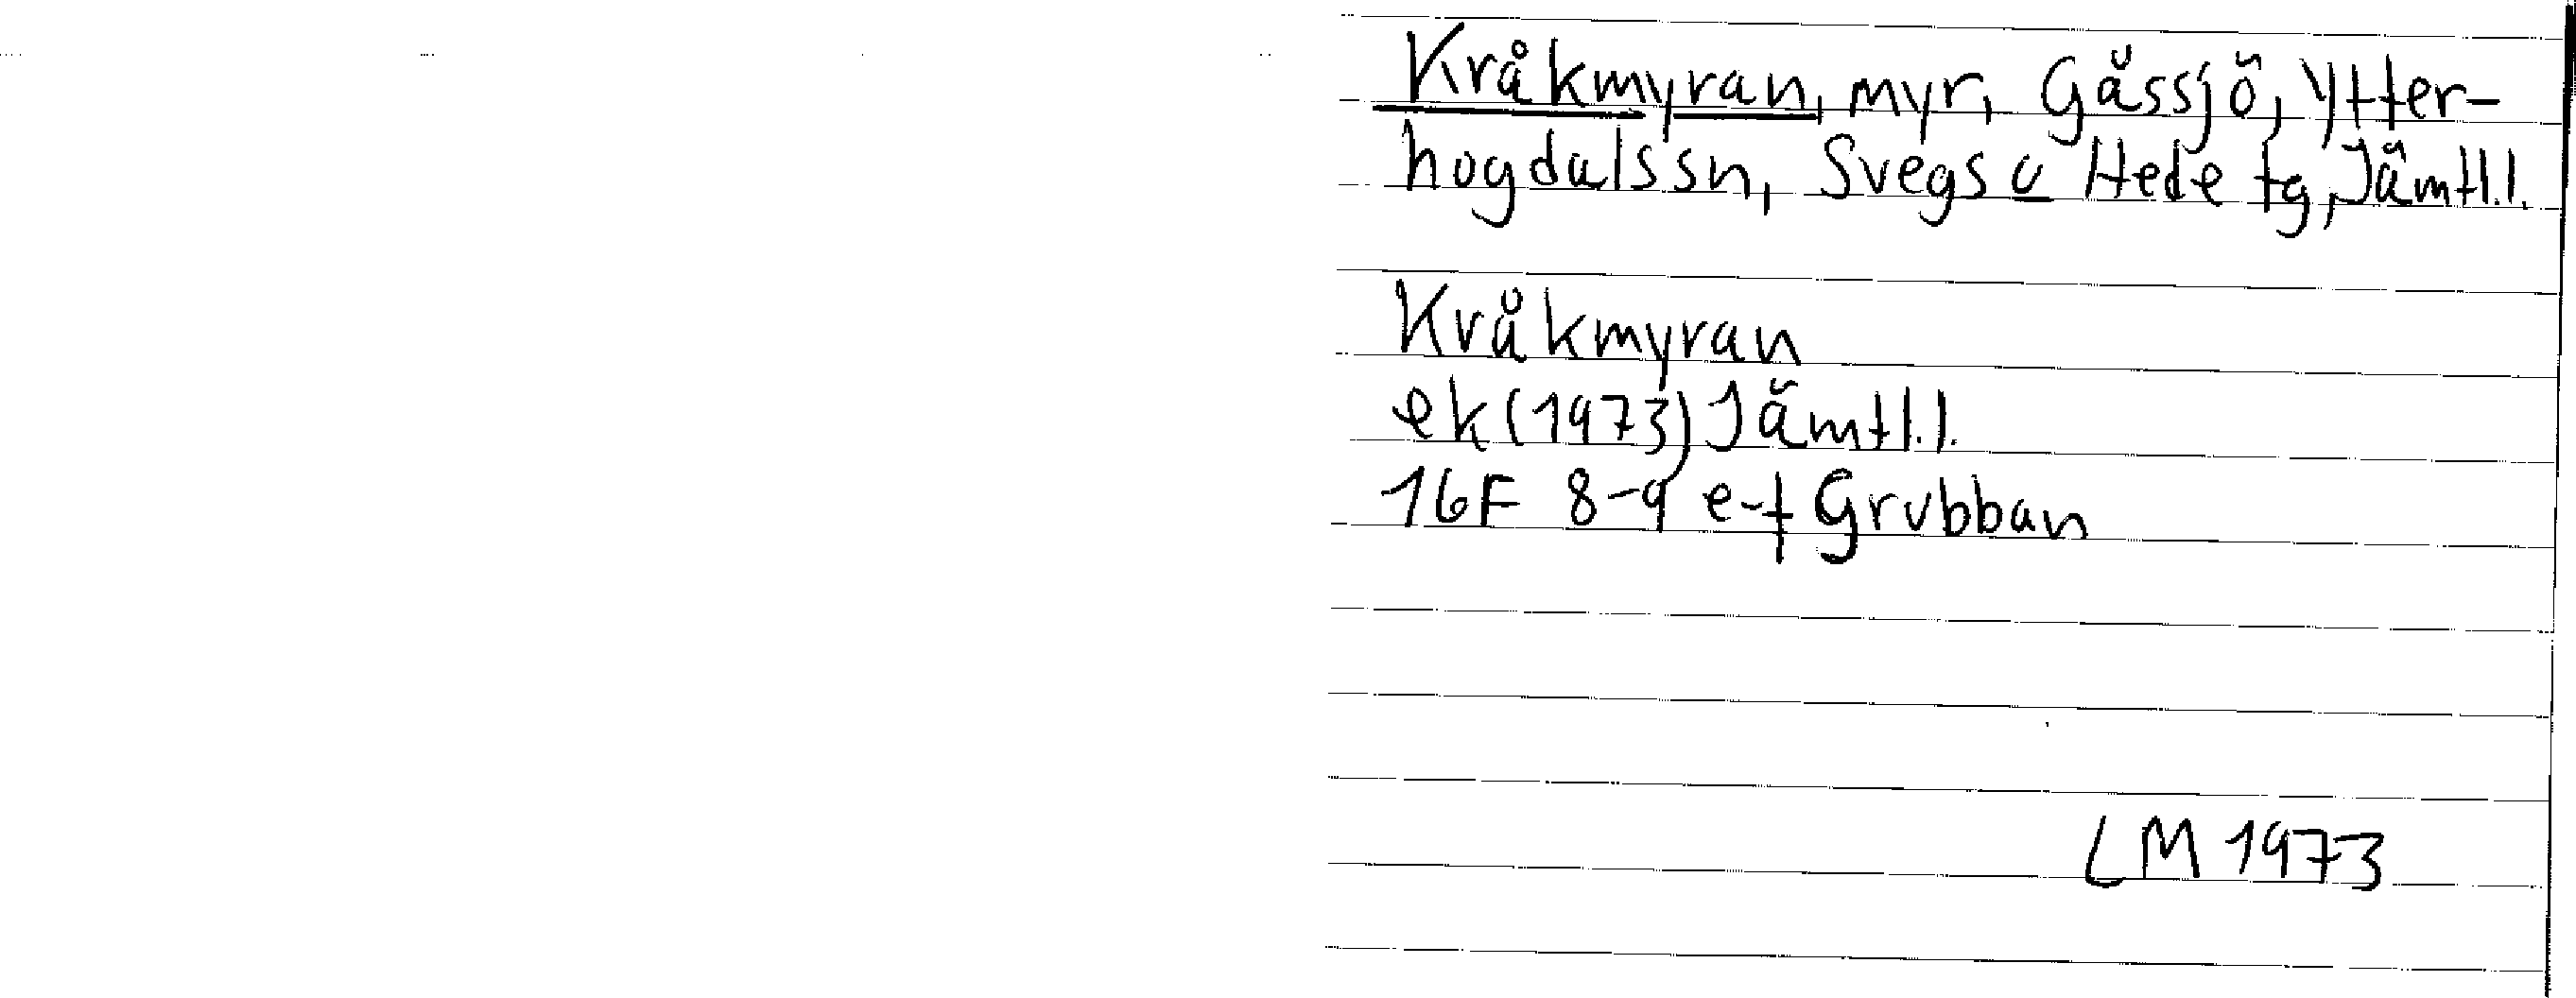 Kråkmyran, myr, Gåssjö, Ytter-
hogdalssn, Svegs o Hede tg, Jämtl.l.
Kråkmyran
ek (1973) Jämtl.l.
16F 8-9 e-f Grubban
LM 1973